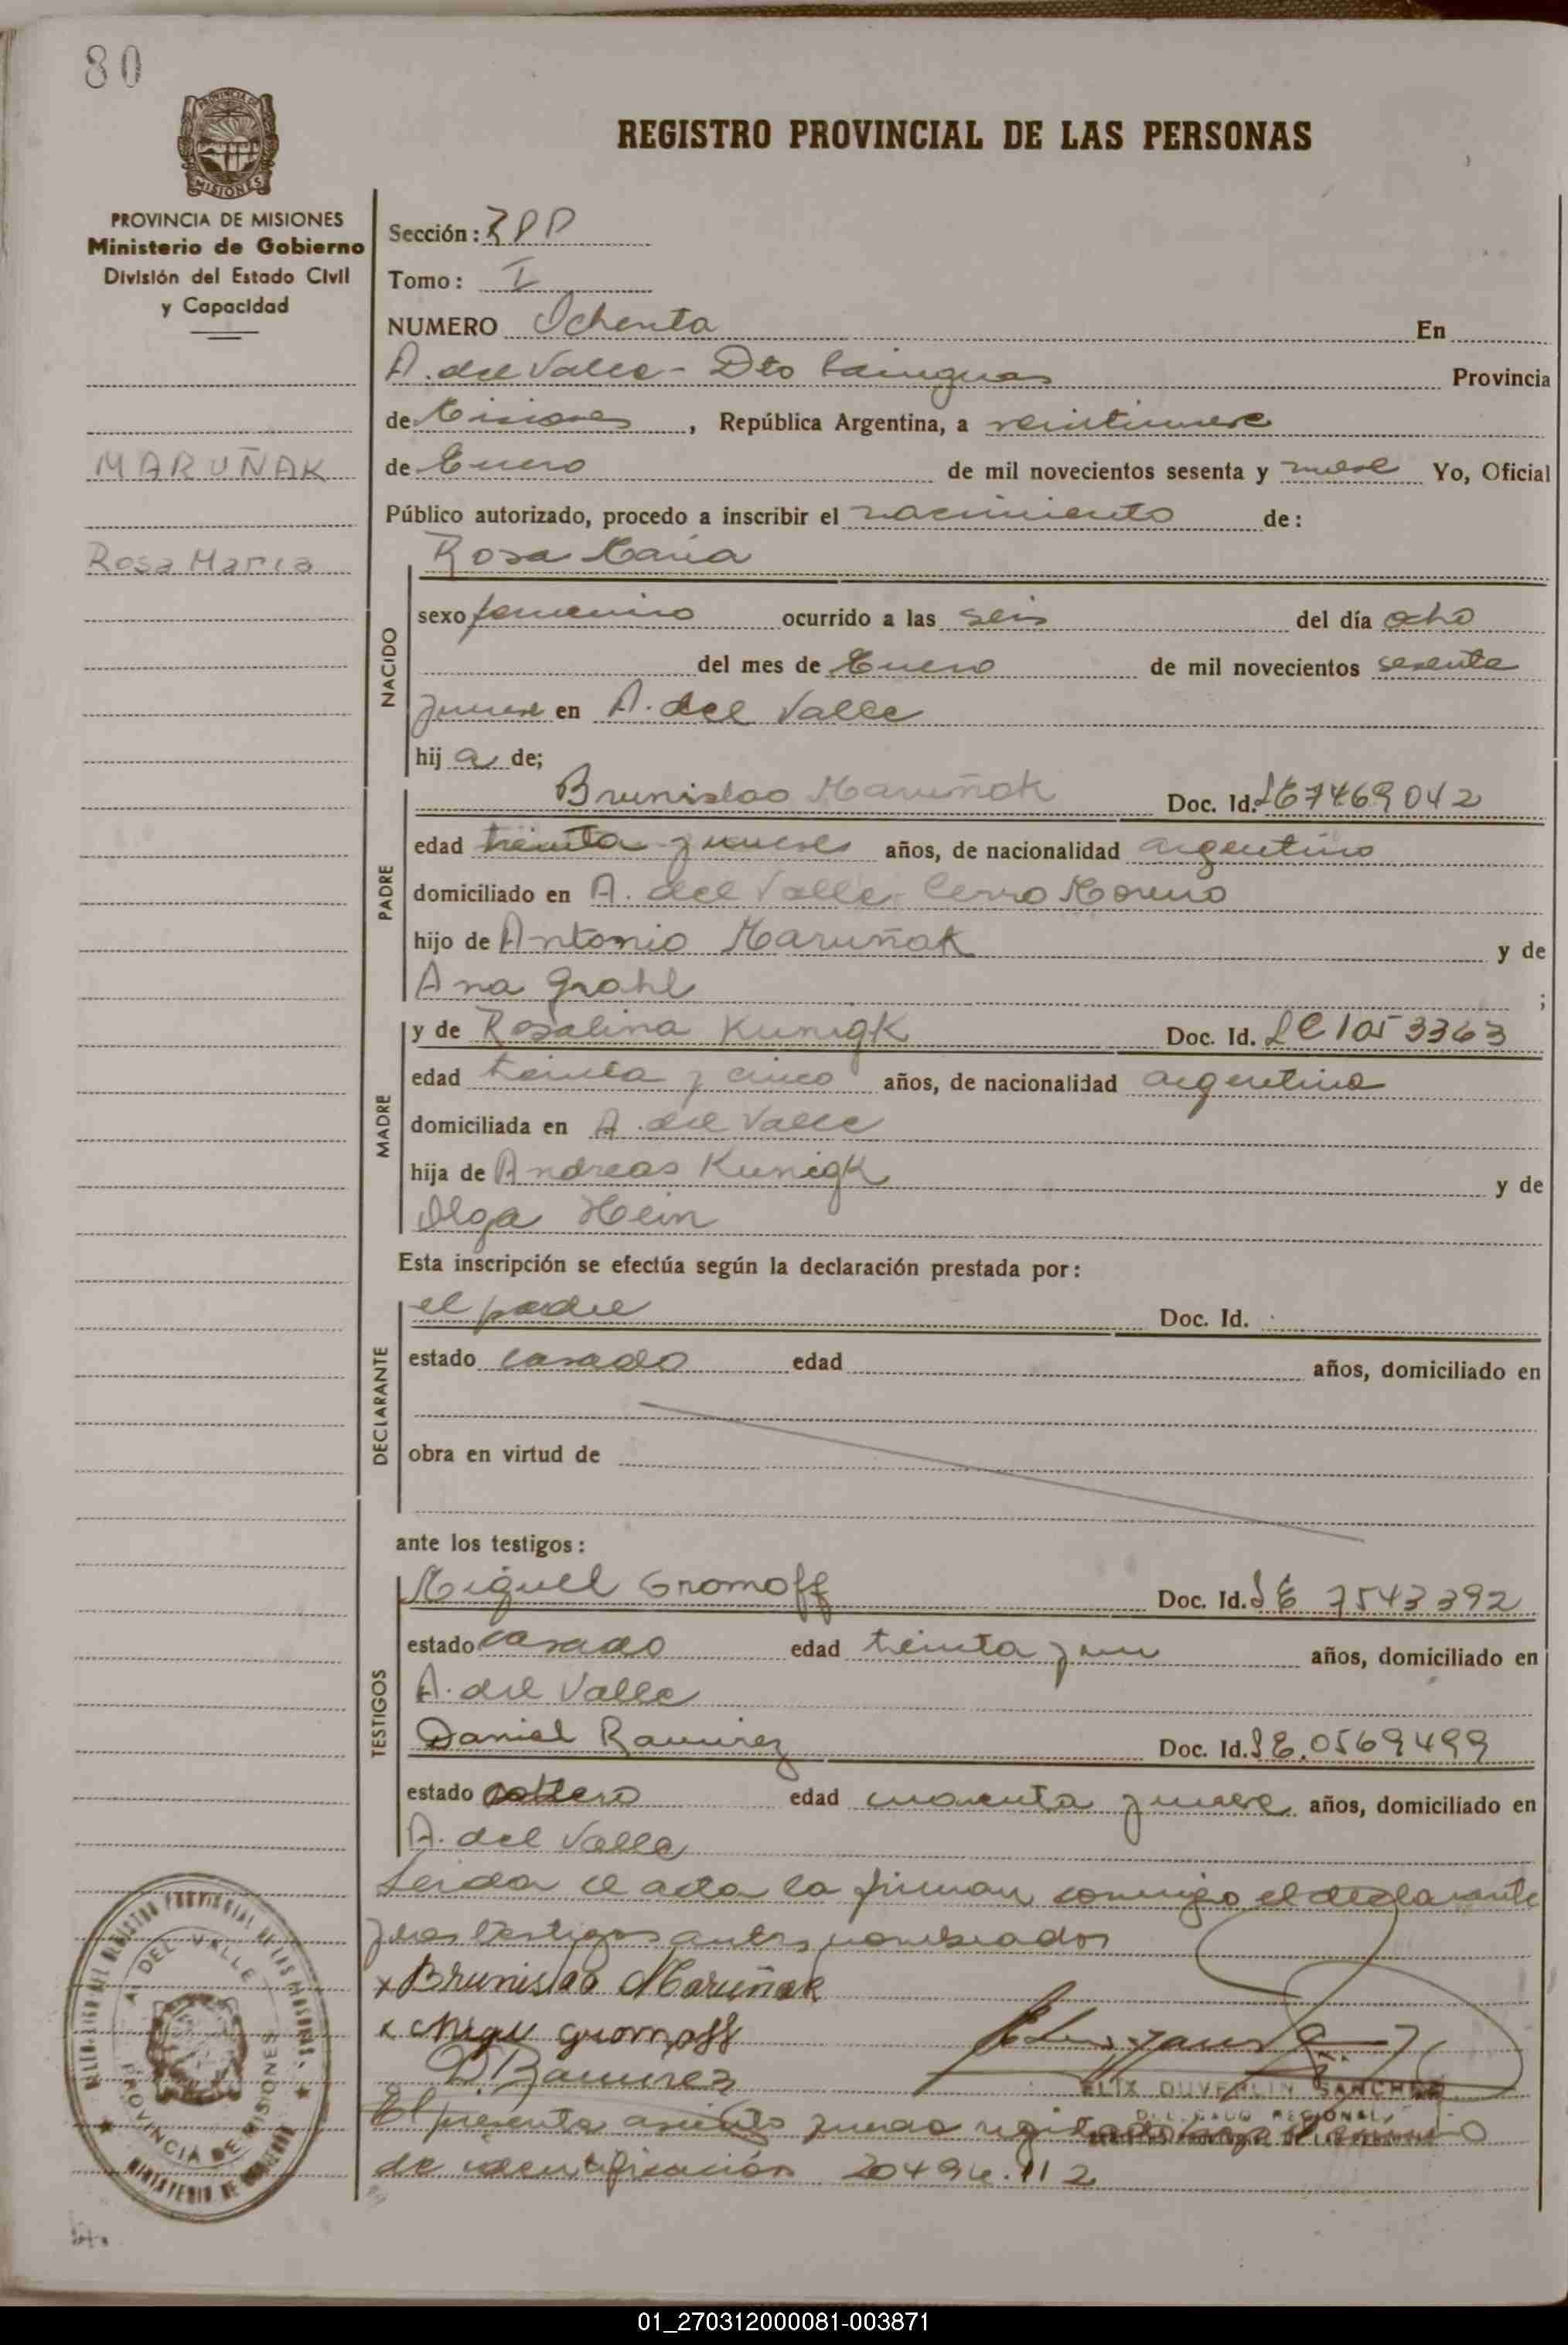 80
REGISTRO PROVINCIAL DE LAS PERSONAS
PROVINCIA DE MISIONES
MISIONES
PROVINCIA DE MISIONES
Ministerio de Gobierno
División del Estado Civil
y Capacidad
MARUÑAK
Rosa Maria
Sección: RPP
Tomo: I
NUMERO Ochenta En
A. del Valle - Dto Cainguas Provincia
de Misiones, República Argentina, a veintinueve
de Enero de mil novecientos sesenta y nueve Yo, Oficial
Público autorizado, procedo a inscribir el nacimiento de:
Rosa Maria
NACIDO
sexo femenino ocurrido a las seis del día ocho
del mes de Enero de mil novecientos sesenta
y nueve en A. del Valle
hij a de;
PADRE
Brunislao Maruñak Doc. Id. LE 7469042
edad treinta y nueve años, de nacionalidad argentino
domiciliado en A. del Valle - Cerro Moreno
hijo de Antonio Maruñak y de
Ana Grahl ;
MADRE
y de Rosalina Kunigk Doc. Id. LC 1053363
edad treinta y cinco años, de nacionalidad argentina
domiciliada en A. del Valle
hija de Andreas Kunigk y de
Olga Hein
Esta inscripción se efectúa según la declaración prestada por:
DECLARANTE
el padre Doc. Id.
estado casado edad años, domiciliado en
obra en virtud de
ante los testigos:
TESTIGOS
Miguel Gromoff Doc. Id. LE 7543392
estado casado edad treinta y un años, domiciliado en
A. del Valle
Daniel Ramirez Doc. Id. LE. 0569499
estado soltero edad cuarenta y nueve años, domiciliado en
A. del Valle
Leida el acta la firman conmigo el declarante
y los testigos antes nombrados
x Brunislao Maruñak
x Migu Gromoff
D. Ramirez
FELIX DUVERLIN SANCHEZ
DELEGADO REGIONAL
El presente asiento queda
de identificación 20494.112
A. DEL VALLE
PROVINCIA DE MISIONES
01_270312000081-003871